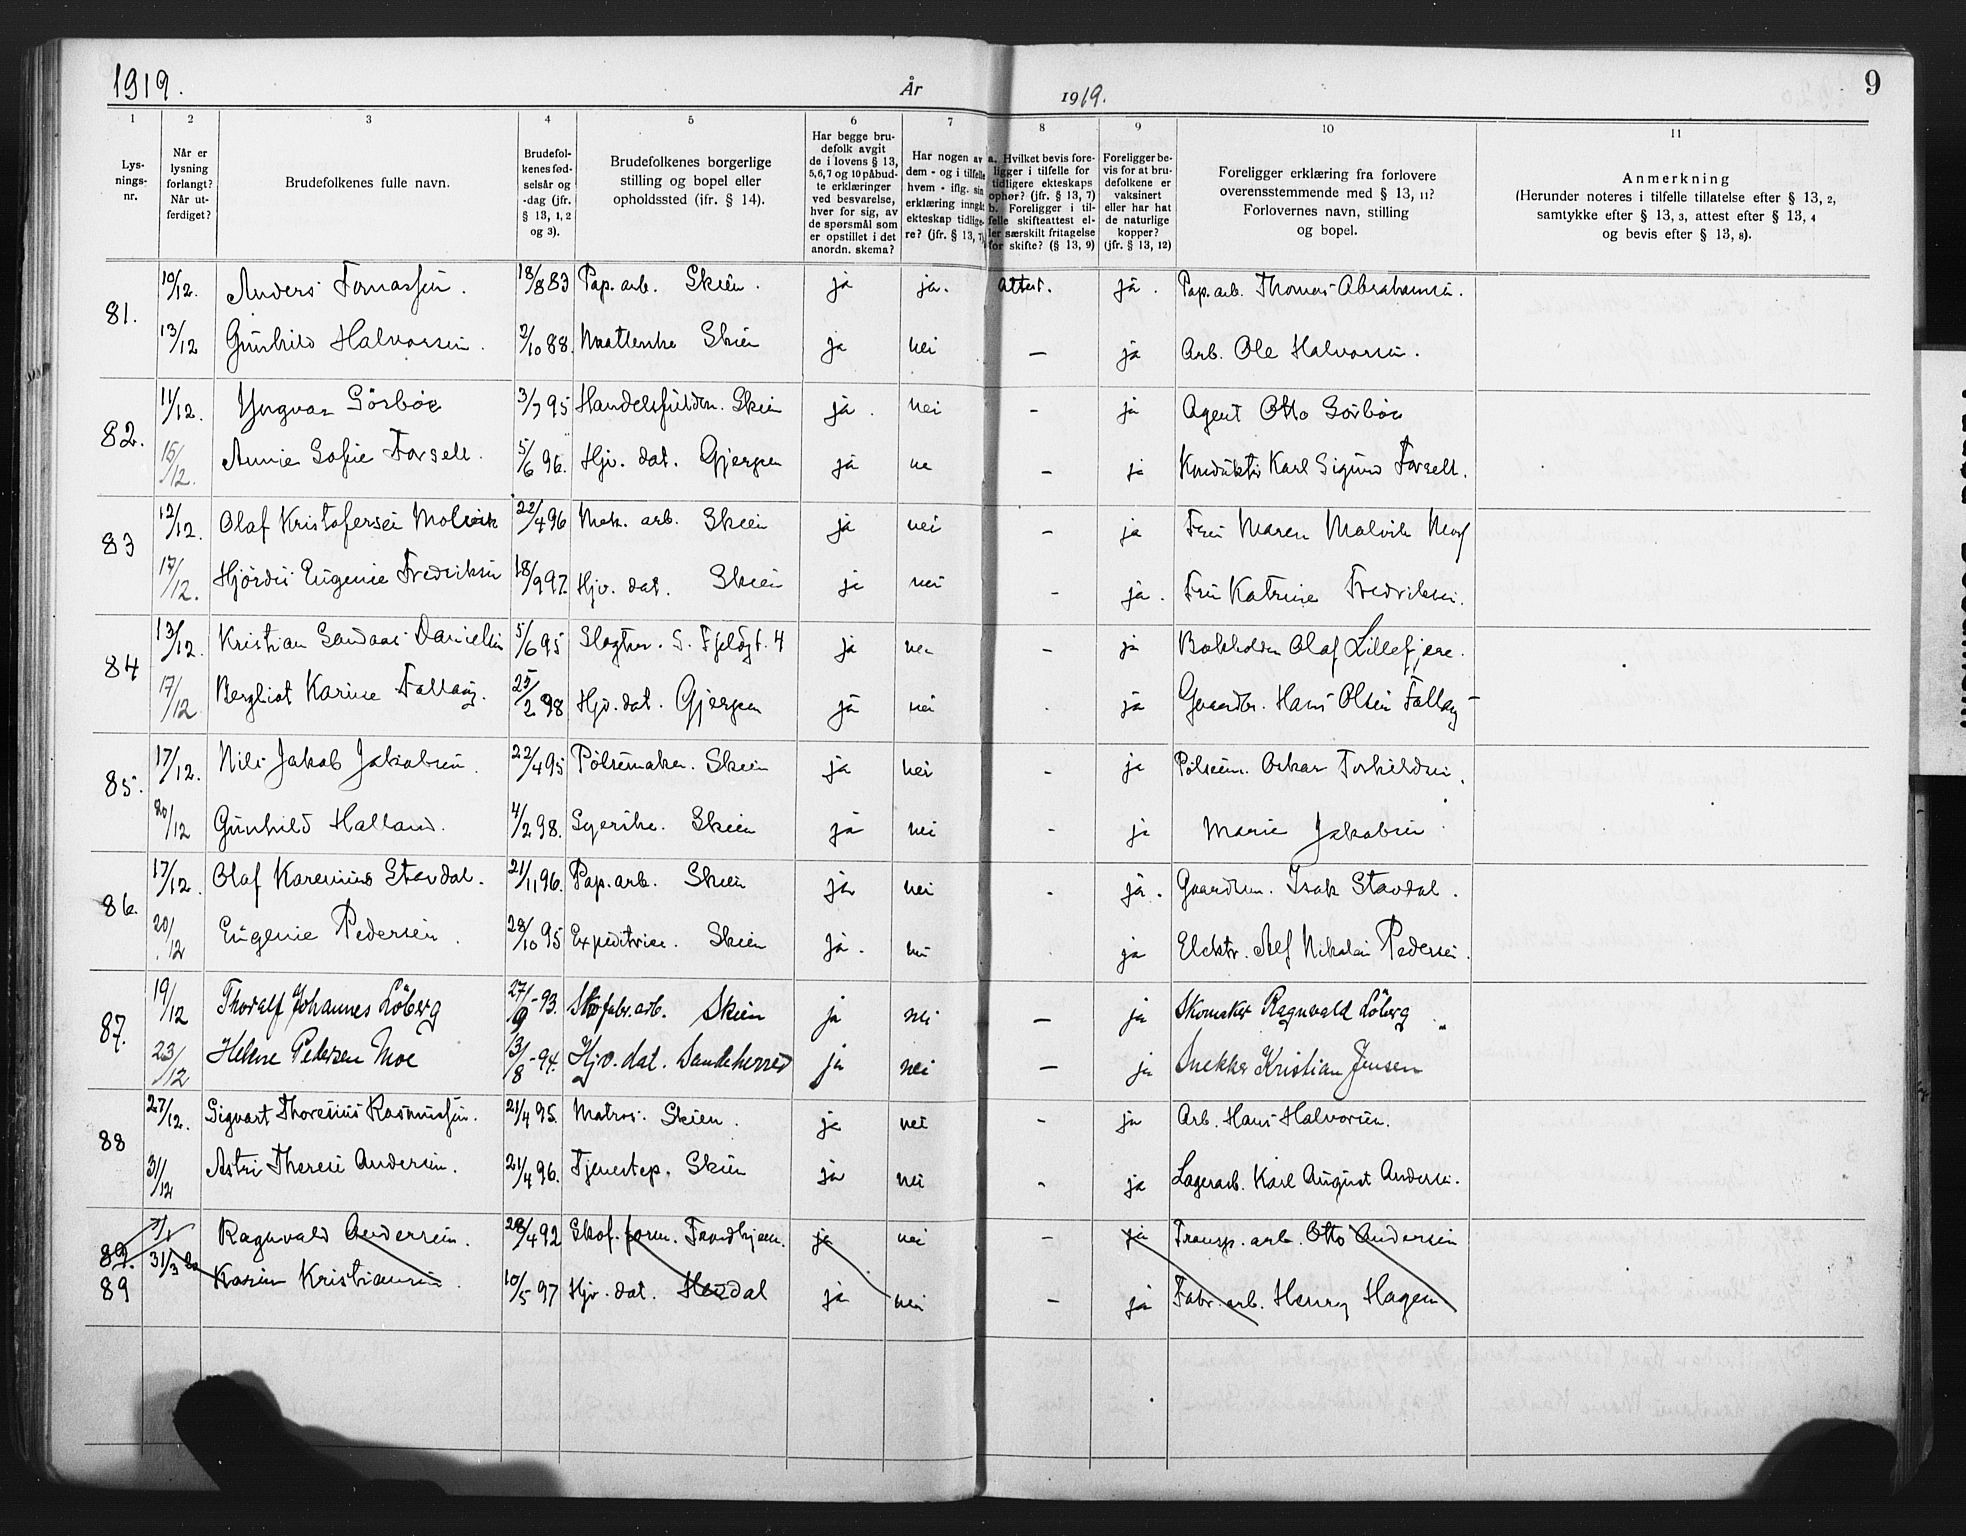 1919.
År
1919.
9
1
2
3
4
5
6
7
8
9
10
11
Lys-
nings-
nr.
Når er
lysning
forlangt?
Når ut-
ferdiget?
Brudefolkenes fulle navn.
Brudefol-
kenes fød-
selsår og
-dag (jfr.
§ 13, 1, 2
og 3).
Brudefolkenes borgerlige
stilling og bopel eller
opholdssted (ifr. § 14).
Har begge bru-
defolk avgit
de i lovens § 13,
5,6,7 og 10 påbud-
te erklæringer
ved besvarelse,
hver for sig, av
de spørsmål som
er opstillet i det
anordn. skema?
Har nogen av
dem - og i tilfelle
hvem - iflg. sin
erklæring inngåt
ekteskap tidlige-
re? (jfr. § 13, 7)
a. Hvilket bevis fore-
ligger i tilfelle for
tidligere ekteskaps
ophør? (jfr. § 13, 7)
b. Foreligger i til-
felle skifteattest el-
ler særskilt fritagelse
for skifte? (§ 13, 9)
Foreligger be-
vis for at bru-
defolkene er
vaksinert
eller har hat
de naturlige
kopper?
(jfr. § 13, 12)
Foreligger erklæring fra forlovere
overensstemmende med § 13, 11?
Forlovernes navn, stilling
og bopel.
Anmerkning
(Herunder noteres i tilfelle tillatelse efter § 13, 2,
samtykke efter § 13, 3, attest efter § 13, 4
og bevis efter § 13, 8).
81. 10/12. Anders Tomassen. 18/8 83 Pap. arb. Skien. ja ja. attest. ja. Pap. arb. Thomas Abrahamsen.
13/12 Gunhild Halvorsen. 2/10 88. Skien ja nei — ja Arb. Ole Halvorsen.
82. 11/12. Yngvar Sörböe 3/7 95 Skien ja. nei - ja Agent Otto Sörböe
15/12. Annie Sofie Forsell. 5/6 96. Hjv. dat. Gjerpen ja ne - ja Konduktör Karl Sigurd Forsell.
83 12/12. Olaf Kristofersen 22/4 96 Mek. arb. Skien ja nei - ja Fru Maren
17/12. Hjördis Eugenie Fredriksen 18/9 97. Hjv. dat. Skien ja nei - ja. Fru Katrine Fredriksen.
84 13/12. Kristian Sandaas Danielsen 5/6 95 Slagter. S. Fjeldgt. 4 ja nei - ja Bokholder Olaf Lillefjære.
17/12 Bergliot Karine Fallang. 25/2 98 Hjv. dat. Gjerpen ja nei - ja Gaardbr. Hans Olsen Fallang
85. 17/12. Nils Jakob Jakobsen. 22/4 95 Pölsemaker. Skien ja nei - ja Pölsem. Oskar Torkildsen.
20/12 Gunhild Halland. 4/2 98. Syerske. Skien ja nei - ja Marie Jakobsen.
86. 17/12. Olaf Karenius Stavdal. 21/11 96. Pap. arb. Skien ja nei - ja. Isak Stavdal.
20/12 Eugenie Pedersen. 28/10 95 Expeditrice. Skien ja. nei ja Elektr. Alf Nikolai Pedersen.
87. 19/12 Thoralf Johannes Löberg 27/9 - 93. Skofabr. arb. Skien ja nei — ja Skomaker Ragnvald Löberg
23/12 Helene Pedersen Moe 13/8 - 94. Hjv. dat. Sandeherred ja nei — ja Snekker Kristian Jensen
88 27/12. Sigvart Thoresius Rasmussen. 21/4 95. Matros. Skien. ja nei - ja Arb. Hans Halvorsen.
31/12 Astri Therese Andersen. 21/4 96. Tjenestep. Skien ja nei - ja Lagerarb. Karl August Andersen.
89. Ragnvald Andersen. 28/4 92 Skof. form. Trondhjem. ja nei - ja Transp. arb. Otto Andersen
89 31/3 20 Karin Kristiansen. 10/5 97 Hjv. dat. ja nei — ja Fabr. arb. Henry Hagen